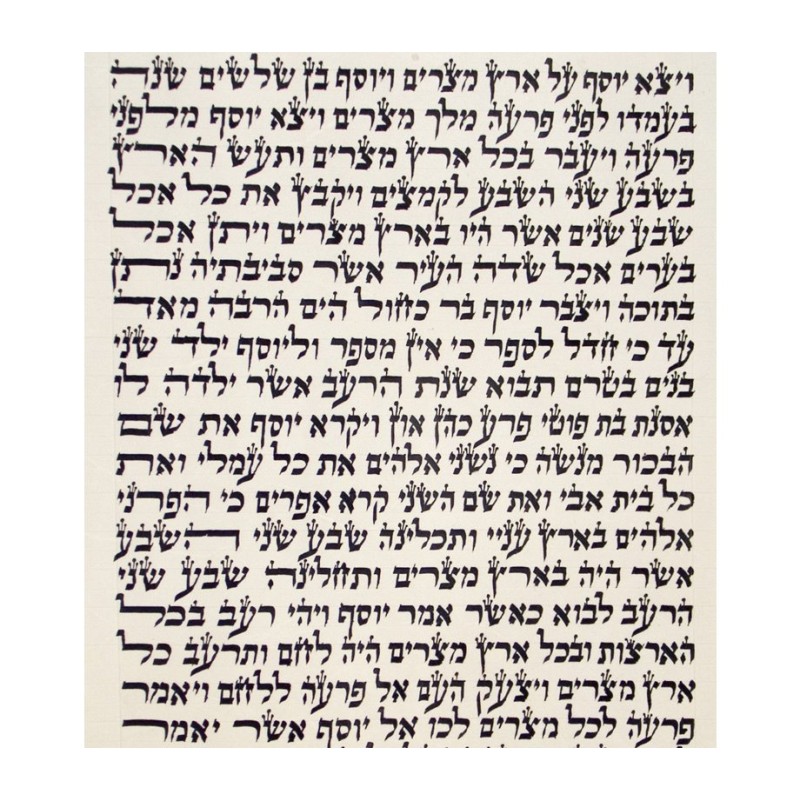 ויצא יוסף על ארץ מצרים ויוסף בן שלשים שנה
בעמדו לפני פרעה מלך מצרים ויצא יוסף מלפני
פרעה ויעבר בכל ארץ מצרים ותעש הארץ
בשבע שני השבע לקמצים ויקבץ את כל אכל
שבע שנים אשר היו בארץ מצרים ויתן אכל
בערים אכל שדה העיר אשר סביבתיה נתן
בתוכה ויצבר יוסף בר כחול הים הרבה מאד
עד כי חדל לספר כי אין מספר וליוסף ילד שני
בנים בטרם תבוא שנת הרעב אשר ילדה לו
אסנת בת פוטי פרע כהן און ויקרא יוסף את שם
הבכור מנשה כי נשני אלהים את כל עמלי ואת
כל בית אבי ואת שם השני קרא אפרים כי הפרני
אלהים בארץ עניי ותכלינה שבע שני השבע
אשר היה בארץ מצרים ותחלינה שבע שני
הרעב לבוא כאשר אמר יוסף ויהי רעב בכל
הארצות ובכל ארץ מצרים היה לחם ותרעב כל
ארץ מצרים ויצעק העם אל פרעה ללחם ויאמר
פרעה לכל מצרים לכו אל יוסף אשר יאמר